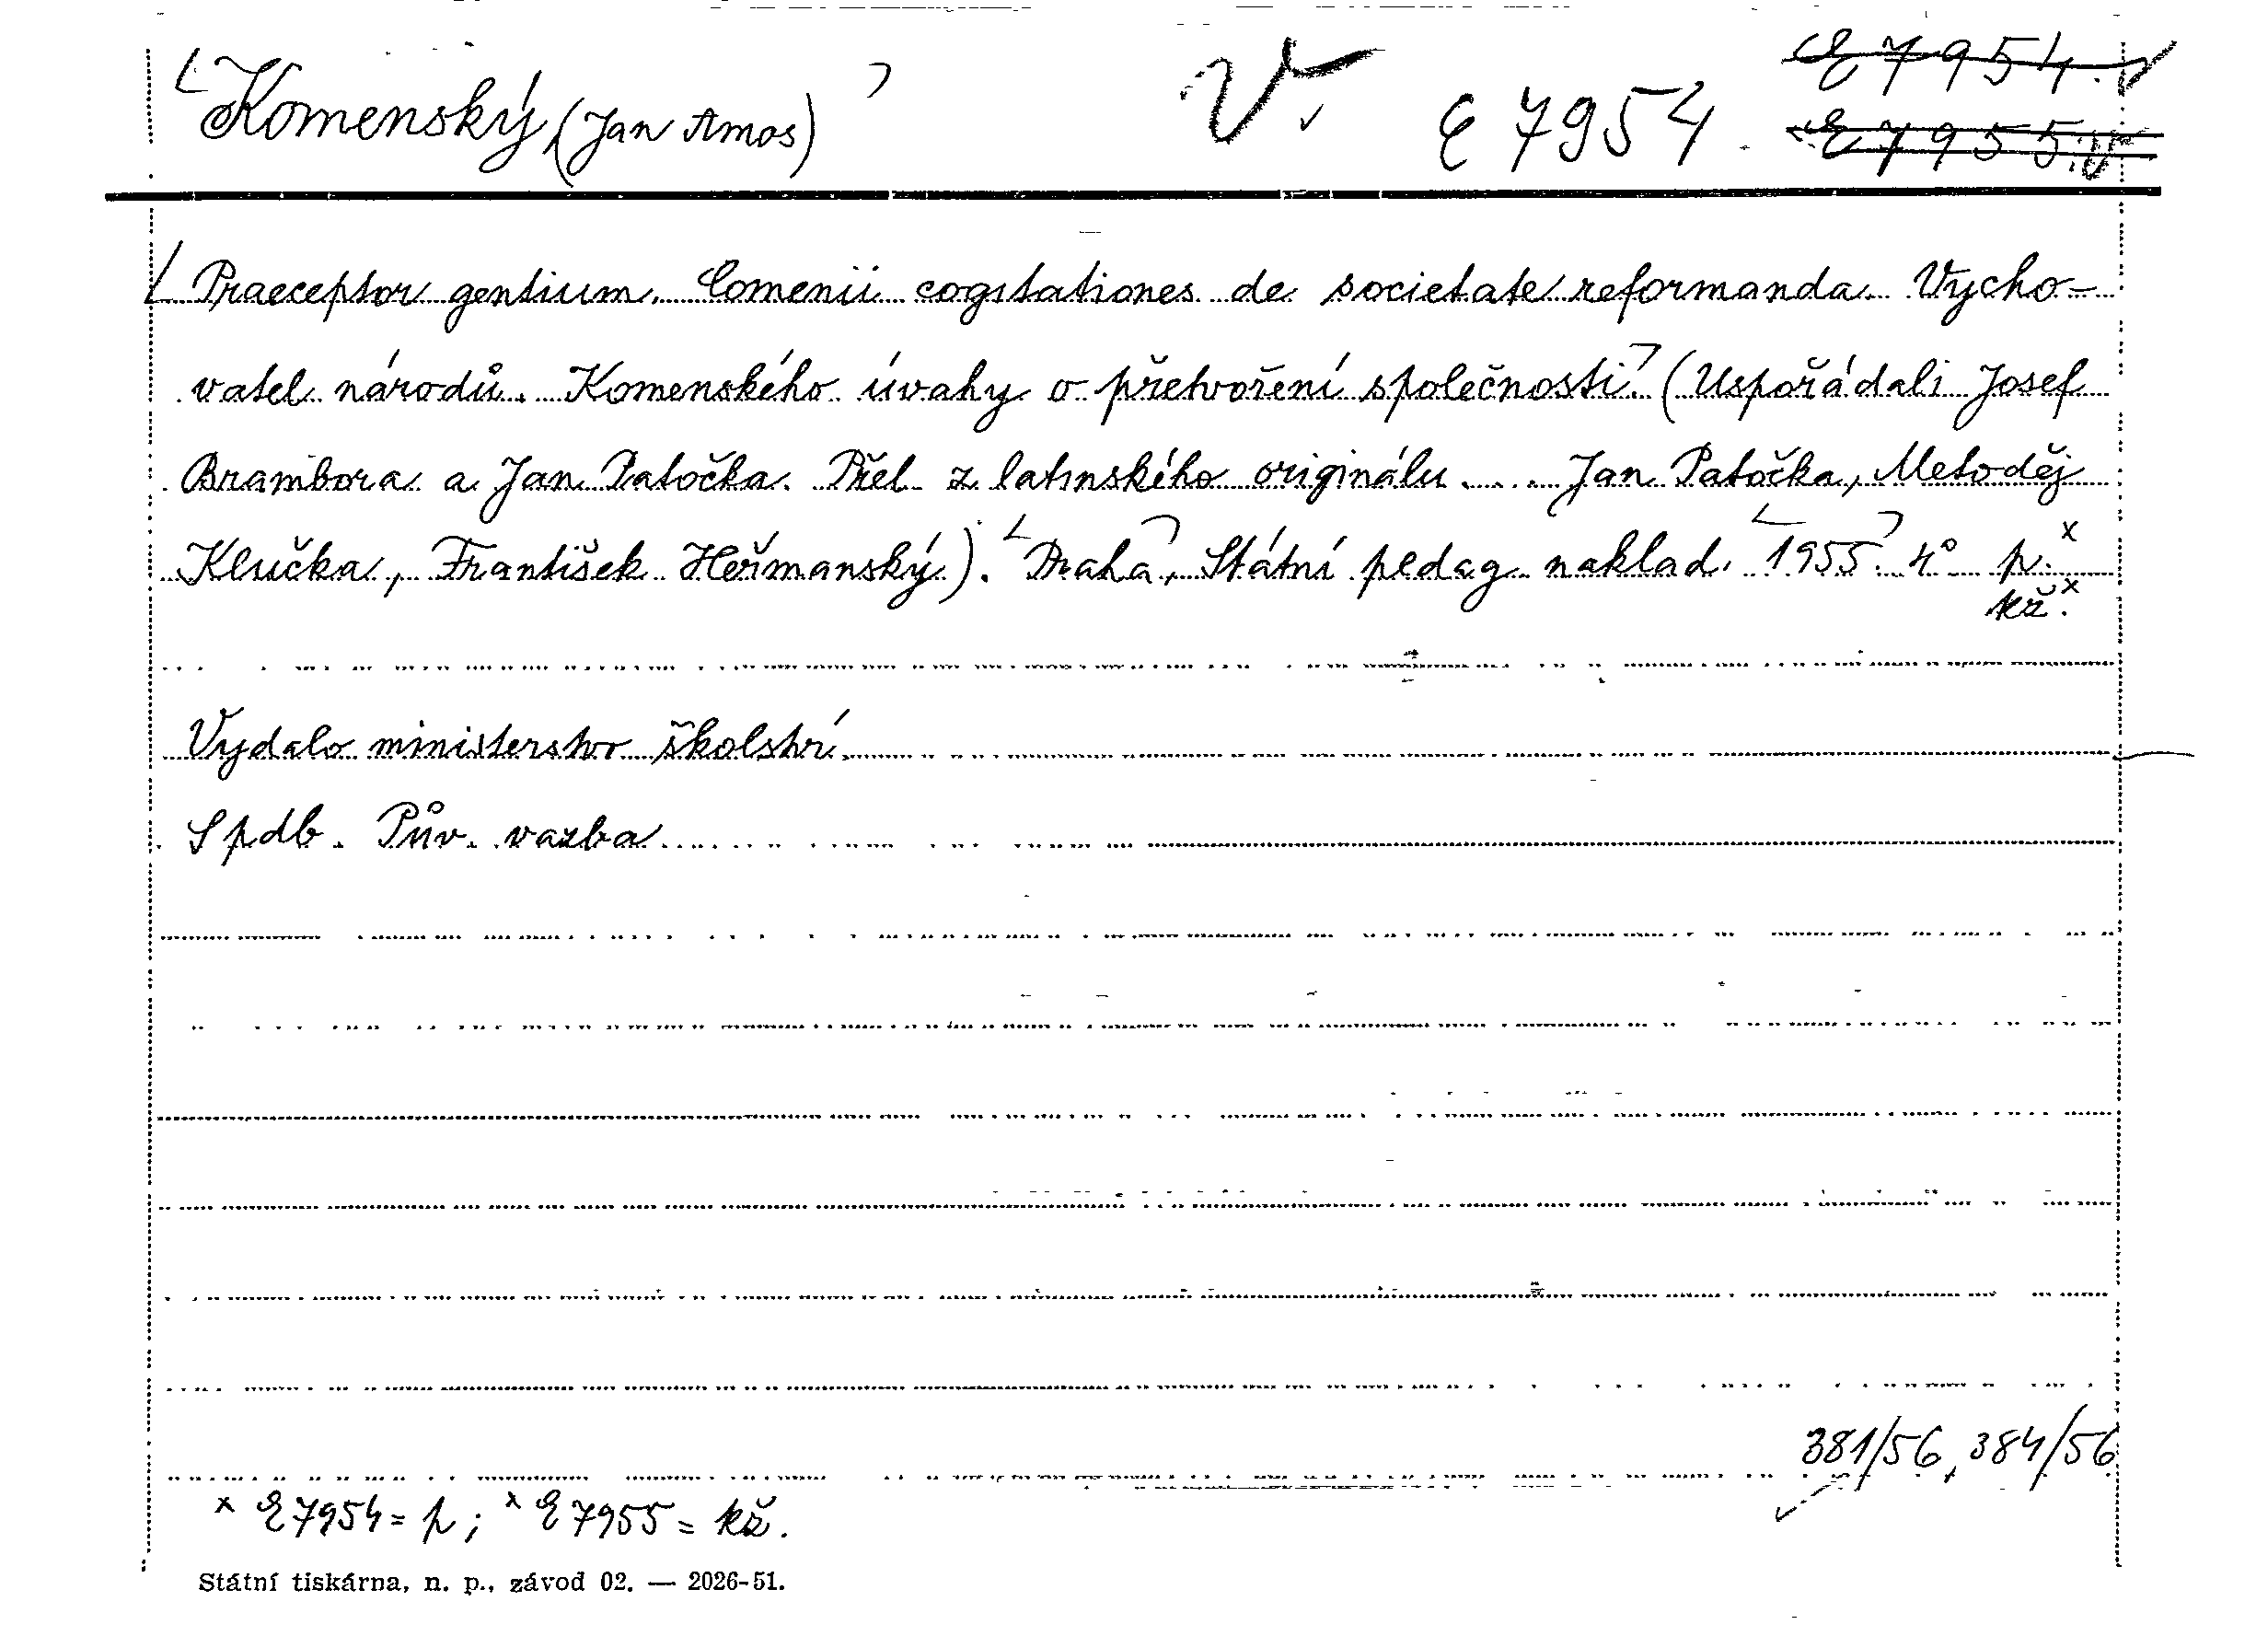 Komenský, (Jan Amos) V. E 7954. E 7954.
E 7955.
Praeceptor gentium. Comenii cogitationes de societate reformanda. Vycho-
vatel národů. Komenského úvahy o přetvoření společnosti. (Uspořádali Josef
Brambora a Jan Patočka. Přel. z latinského originálu ... Jan Patočka, Metoděj
Klučka, František Heřmanský). Praha, Státní pedag. naklad. 1955. 4° p. x
kž. x
Vydalo ministerstvo školství.
Spdb. Pův. vazba
381/56, 384/56
x E 7954 = p; x E 7955 = kž.
Státní tiskárna, n. p., závod 02. — 2026-51.